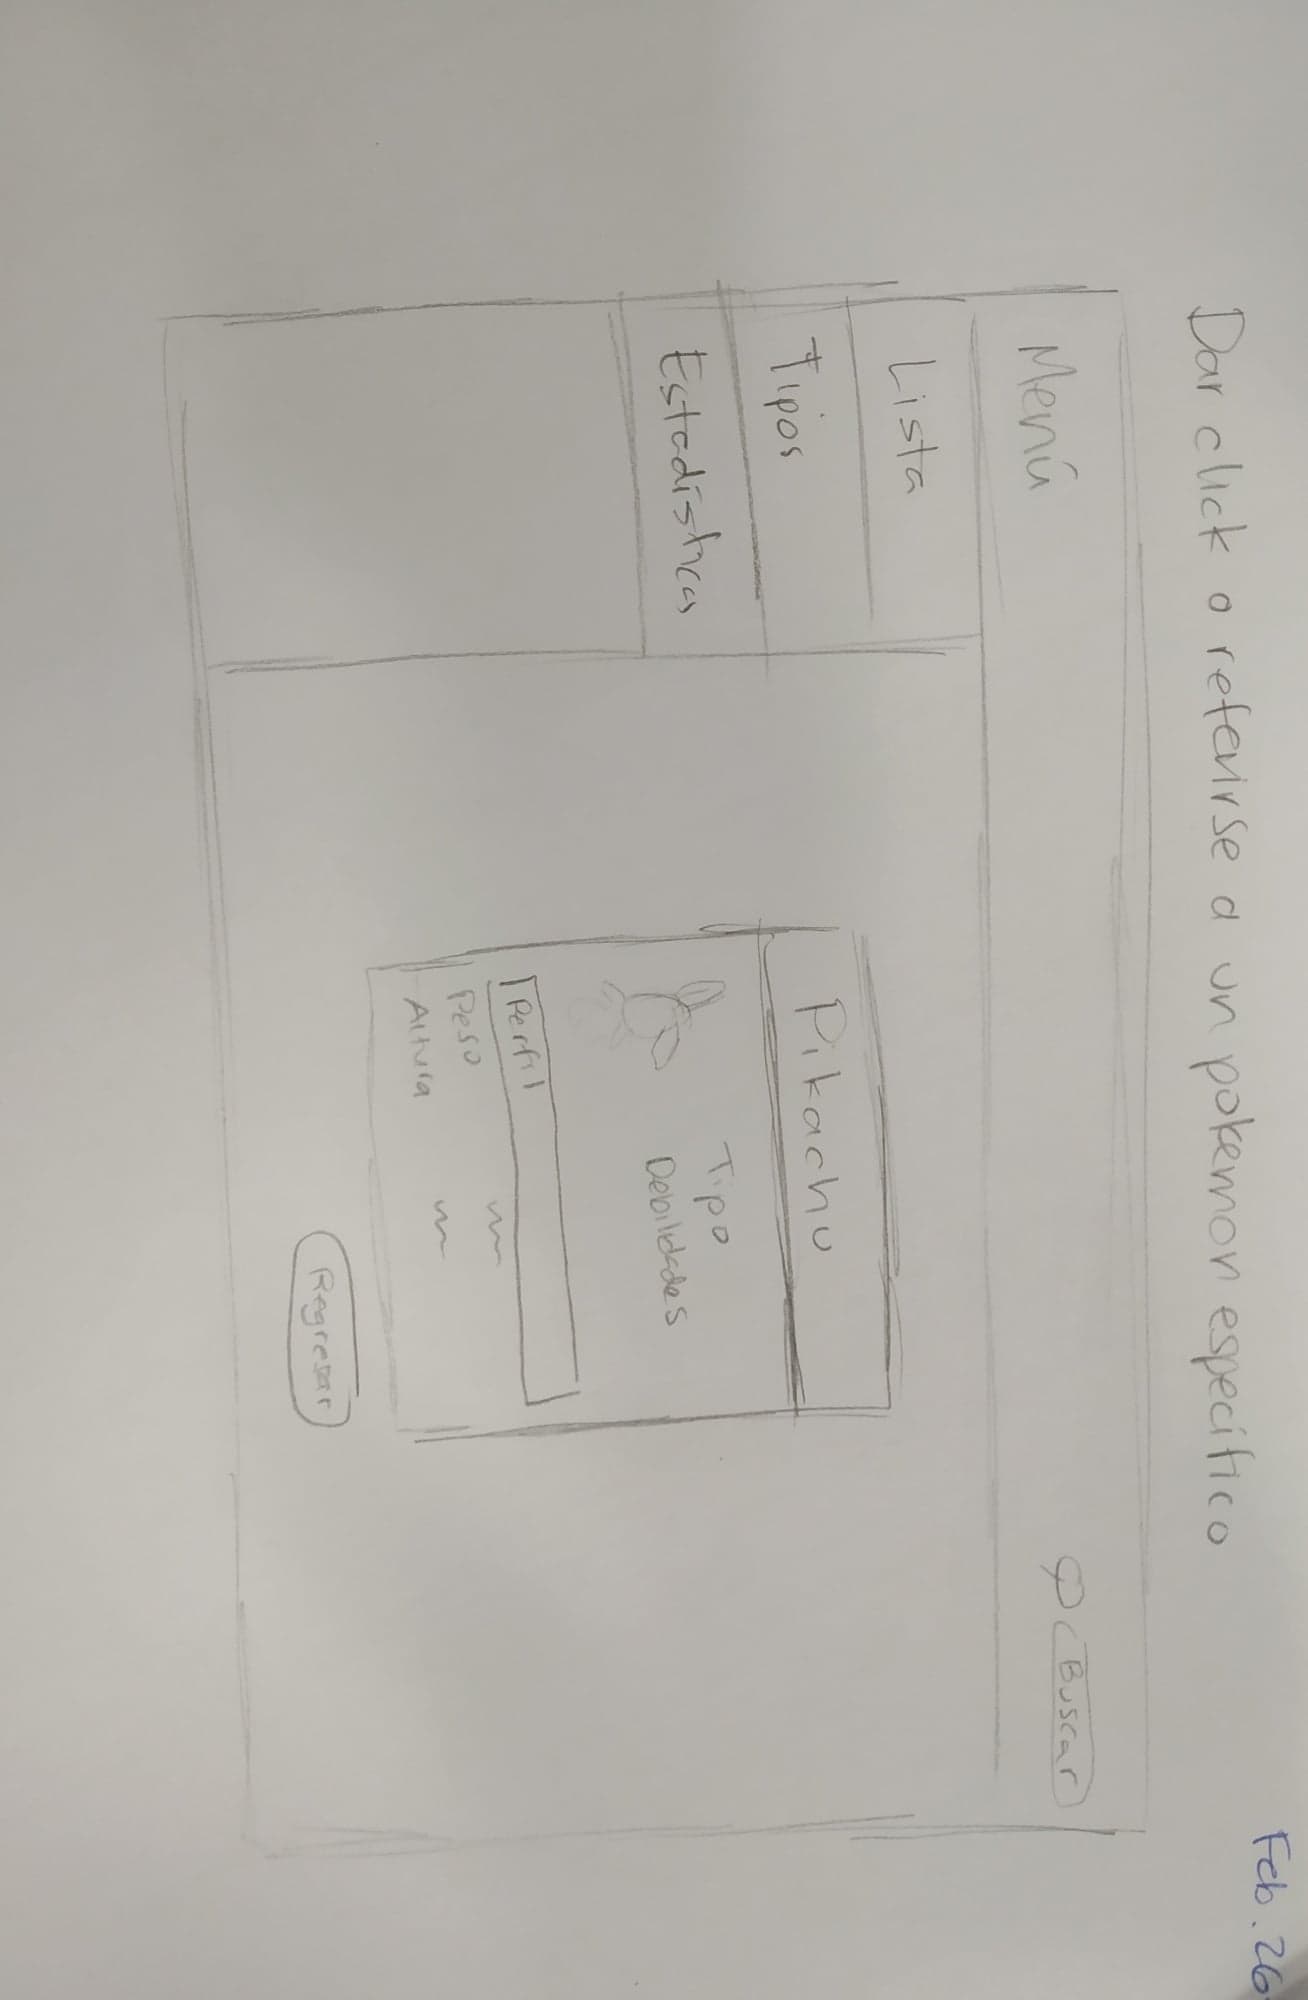 Feb. 26
Dar click o referirse a un pokemon específico
Menú
Buscar
Lista
Tipos
Estadísticas
Pikachu
Tipo
Debilidades
Perfil
Peso
Altura
Regresar